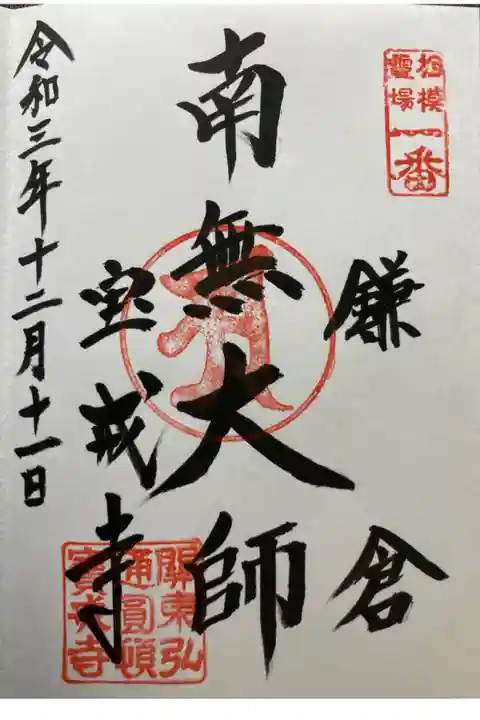 相模
靈場
一番
鎌倉
南無大師
宝戒寺
令和三年十二月十一日
關東弘
通圓頓
寳戒寺